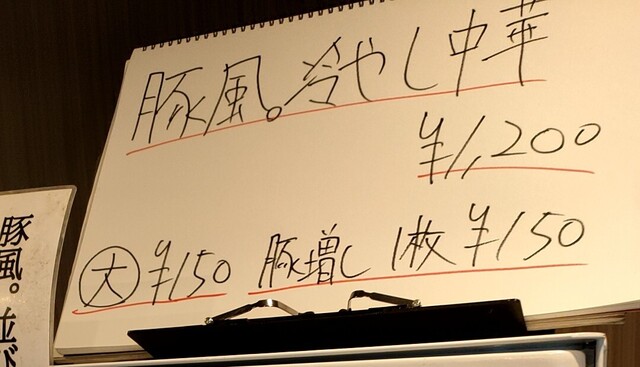 豚風。冷やし中華
¥1,200
大 ¥150 豚増し 1枚 ¥150
豚風。並び